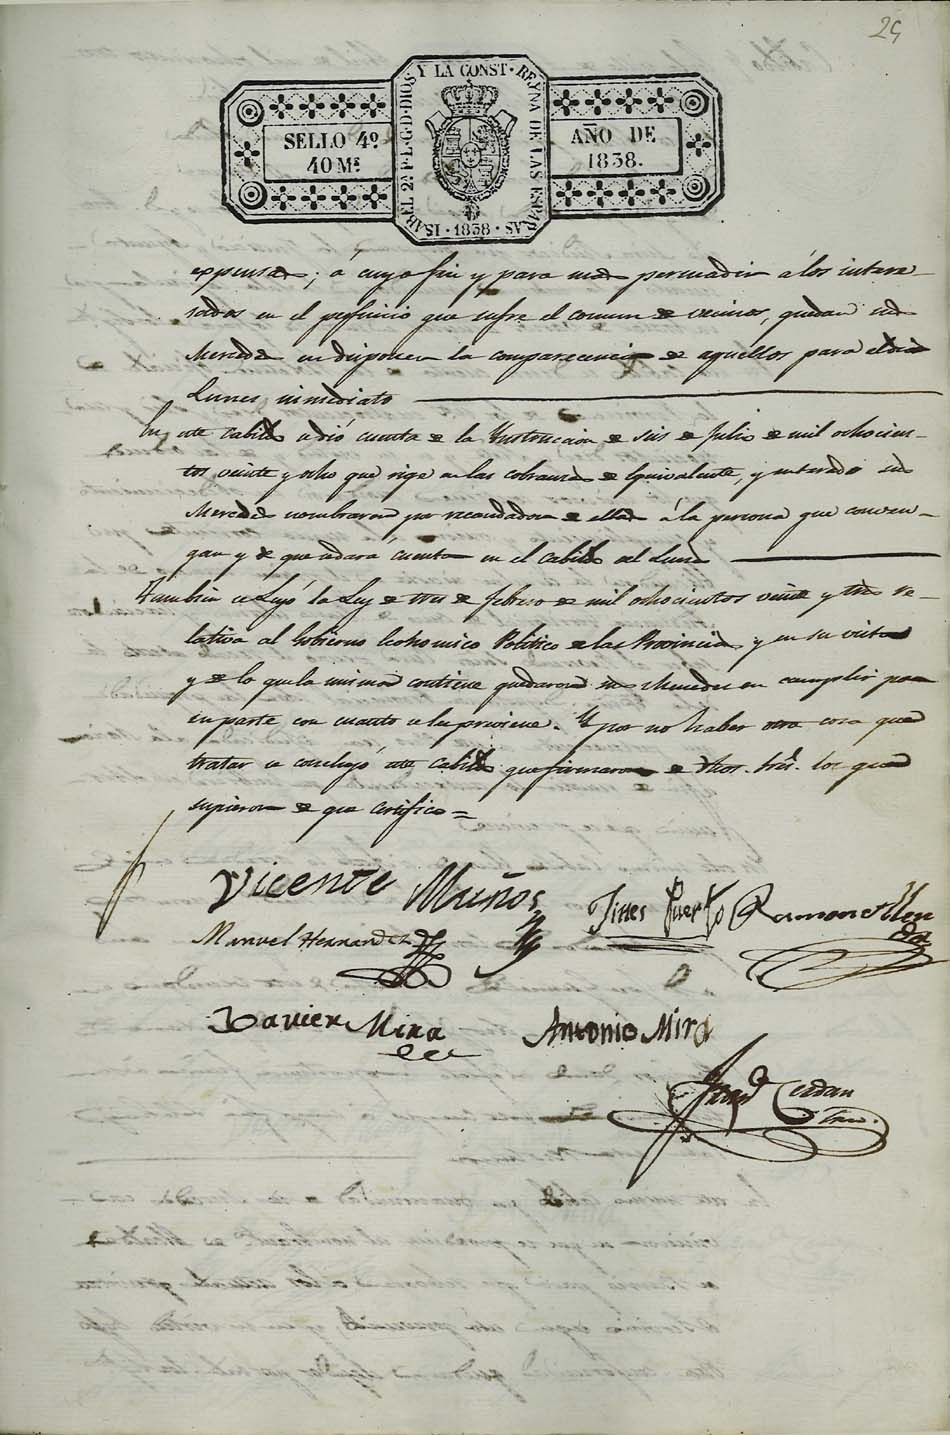 25
ISABEL 2ª P. L. G. D. DIOS Y LA CONST. REYNA DE LAS ESPAÑAS
SELLO 4º
40 Mˢ
AÑO DE
1838.
· 1838 ·
expensas; á cuyo fin y para mas persuadir á los intere-
sados en el perjuicio que sufre el comun de vecinos, quedan sus
Mercedes en disponer la comparecencia de aquellos para el dia
Lunes inmediato
En este Cabildo se dió cuenta de la Ynstruccion de seis de Julio de mil ochocien-
tos veinte y ocho que rige en las cobranzas de Equivalente, y enterados sus
Mercedes nombraron por recaudadores de ellas á la persona que conven-
gan y de que se dará cuenta en el Cabildo del Lunes
Tambien se Leyó la Ley de tres de febrero de mil ochocientos veinte y tres re-
lativa al Gobierno Economico Politico de las Provincias y en su vista
y de lo que la misma contiene quedaron sus Mercedes en cumplir por
su parte con cuanto se les previene. Y por no haber otra cosa que
tratar se concluyó este Cabildo que firmaron de dhos. Srs. los que
supieron de que certifico =
Vicente Muños
Jines Puerto
Ramon Alen
da
Manuel Hernandez
Xavier Mira
Antonio Mira
Cerdan
Srio.